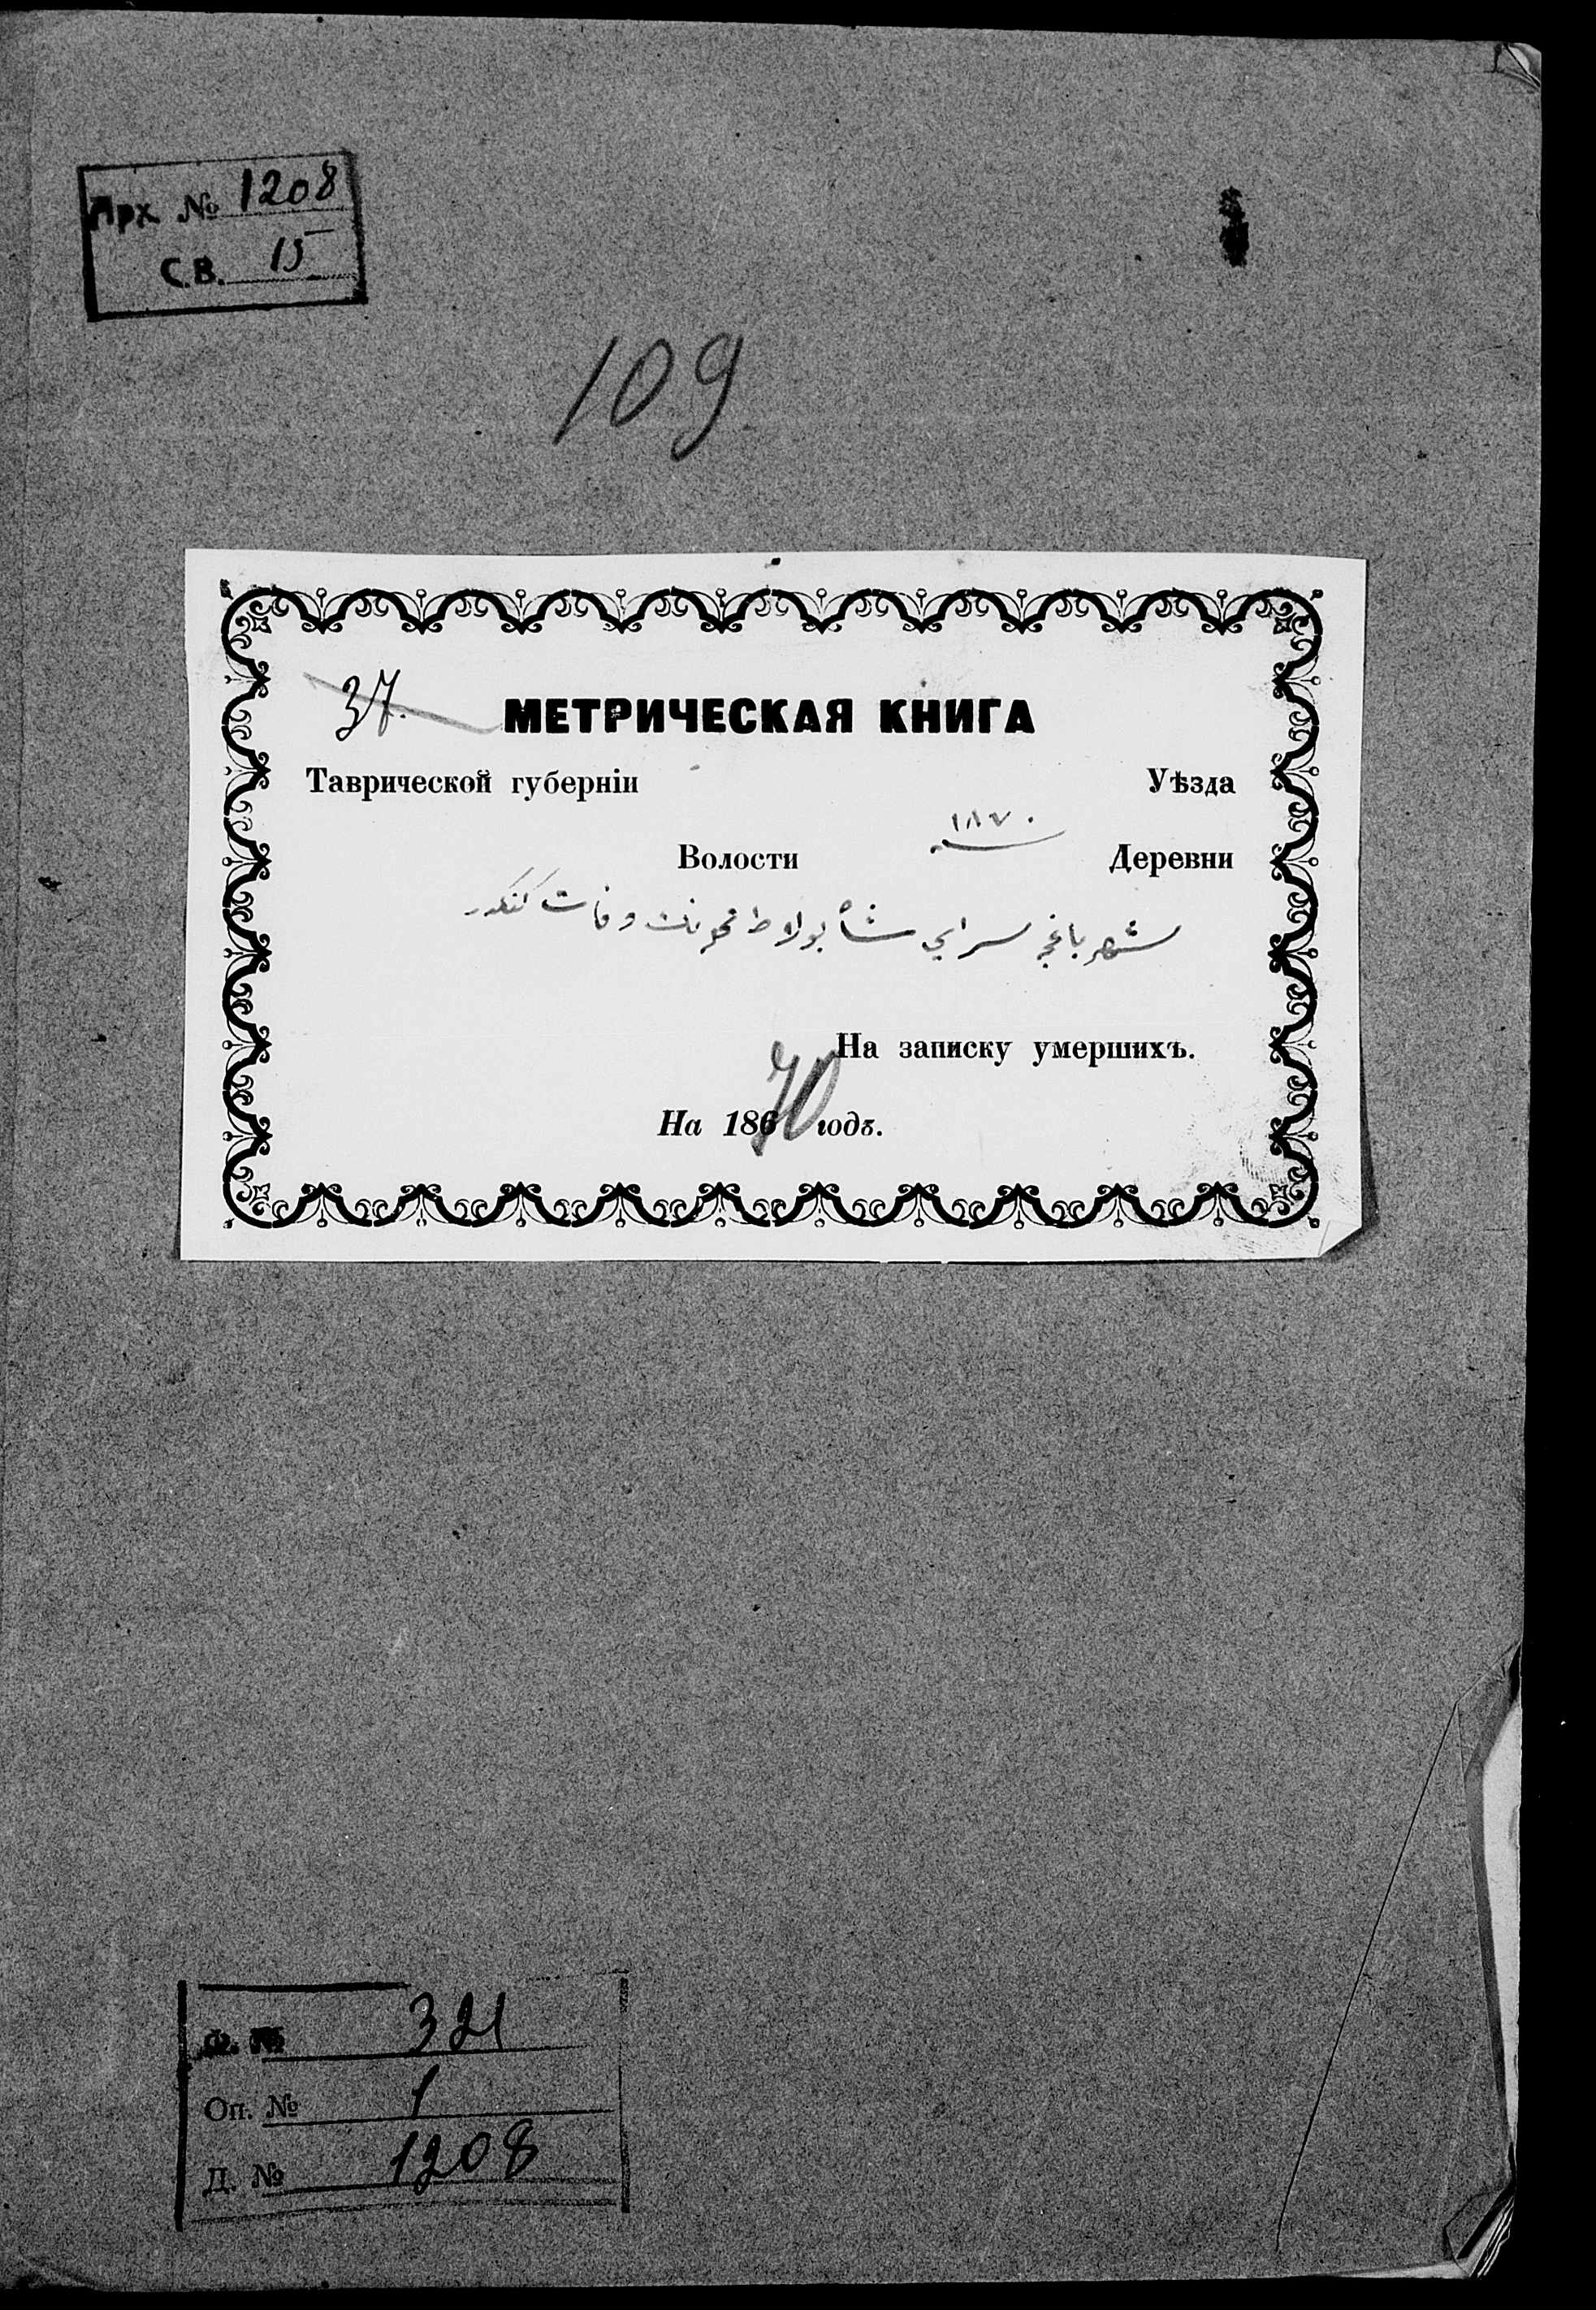 Арх № 1208
С.В. 15
109
37.
МЕТРИЧЕСКАЯ КНИГА
Таврической губерніи Уѣзда
١٨٧٠
Волости Деревни
شهر باغچه سرايى شاه بولاط وفات
На записку умершихъ.
На 1870 годъ.
Ф. № 321
Оп. № 1
Д. № 1208